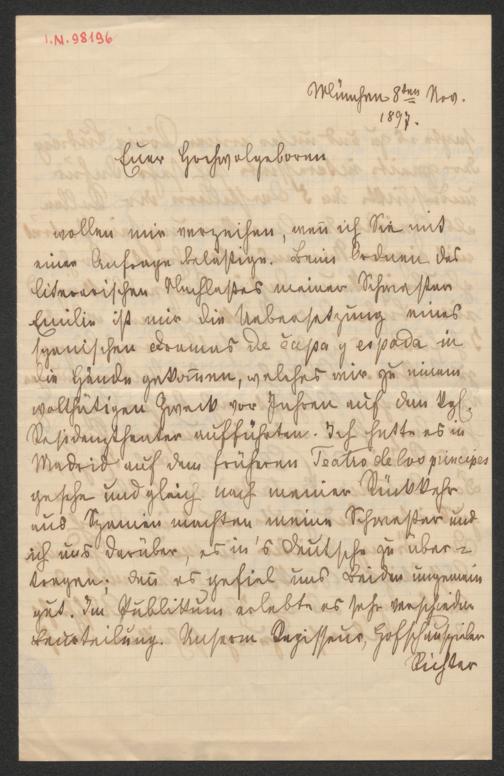 I.N. 98196
München 8ten Nov.
1897.
Euer Hochwolgeboren
wollen mir verzeihen, wen̄ ich Sie mit
einer Anfrage belästige. Beim Ordnen des
literarischen Nachlaßes meiner Schwester
Emilie ist mir die Uebersetzung eines
spanischen Dramas de capa y espada in
die Hände gekom̄en, welches wir zu einem
wolthätigen Zweck vor Jahren auf dem kgl.
Residenztheater aufführten. Ich hatte es in
Madrid auf dem früheren Teatro de los principes
gesehen und gleich nach meiner Rückkehr
aus Spanien machten meine Schwester und
ich uns darüber, es in's Deutsche zu über-
tragen; den̄ es gefiel uns Beiden ungemein
gut. Im Publikum erlebte es sehr verschiedene
Beurteilung. Unserm Regisseur, Hofschauspieler
Richter